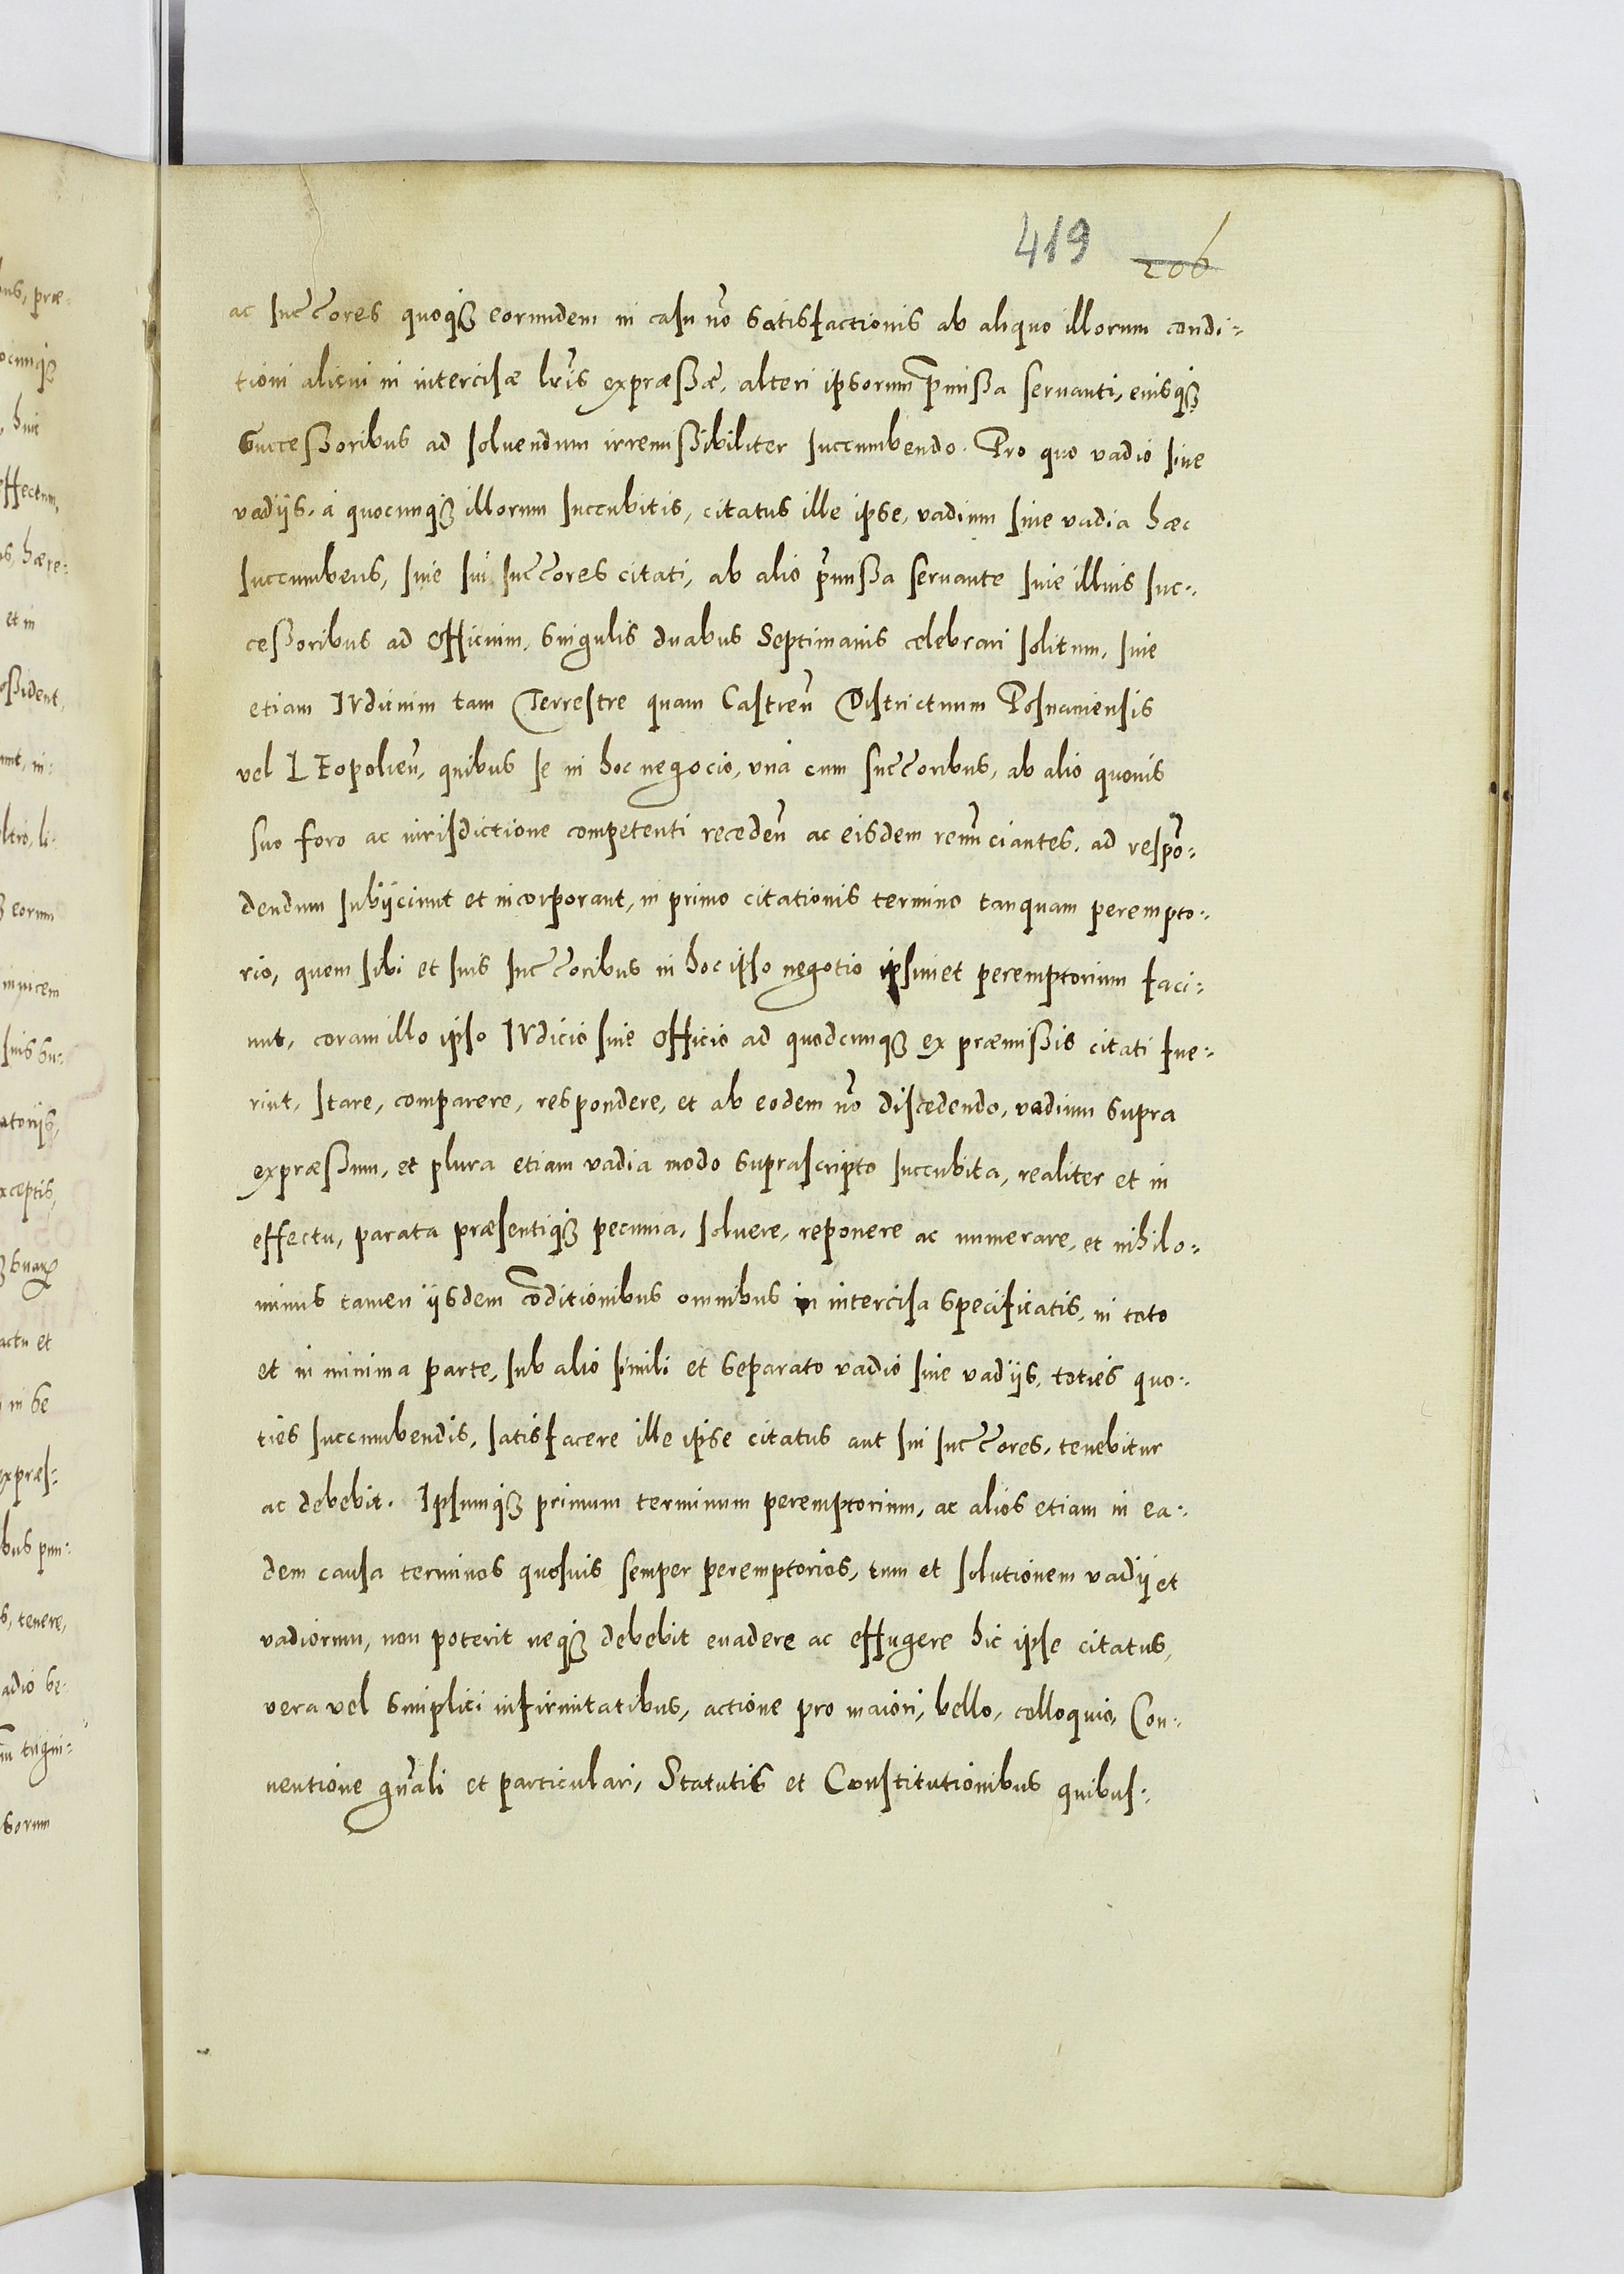 419 206
ac succ̃ores quoq́ȝ eorundem in casu nõ satisfactionis ab aliquo illorum condi:
tioni alicui in intercisæ lr̃is expræßæ, alteri ipsorum p̃mißa seruanti, eiusq́ȝ
Succeßoribus ad soluendum irremißibiliter succumbendo. Pro quo vadio siue
vadijs, à quocunq́ȝ illorum succubitis, citatus ille ipse, vadium siue vadia hæc
succumbens, siue sui succ̃ores citati, ab alio p̃mißa seruante siue illius suc:
ceßoribus ad Officium, singulis duabus Septimanis celebrari solitum, siue
etiam IVdicium tam Terrestre quam Castreñ Districtuum Posnaniensis
vel LEopolieñ, quibus se in hoc negocio, vnà cum succ̃oribus, ab alio quouis
suo foro ac iurisdictione competenti recedeñ ac eisdem renũciantes, ad respõ:
dendum subijciunt et incorporant, in primo citationis termino tanquam perempto:
rio, quem sibi et suis succ̃oribus in hoc ipso negotio ipsimet peremptorium faci:
unt, coram illo ipso IVdicio siue Officio ad quodcunqȝ ex præmißis citati fue:
rint, stare, comparere, respondere, et ab eodem nõ discedendo, vadium supra
expræßum, et plura etiam vadia modo suprascripto succubita, realiter et in
effectu, parata præsentiq́ȝ pecunia, soluere, reponere ac numerare, et nihilo:
minus tamen ijsdem cõditionibus omnibus in intercisa specificatis, in toto
et in minima parte, sub alio simili et separato vadio siue vadijs, toties quo:
ties succumbendis, satisfacere ille ipse citatus aut sui succ̃ores, tenebitur
ac debebit. Ipsumq́ȝ primum terminum peremptorium, ac alios etiam in ea:
dem causa terminos quosuis semper peremptorios, tum et solutionem vadij et
vadiorum, non poterit neqȝ debebit euadere ac effugere hic ipse citatus,
vera vel simplici infirmitatibus, actione pro maiori, bello, colloquio, Con:
uentione gñali et particulari, Statutis et Constitutionibus quibus: